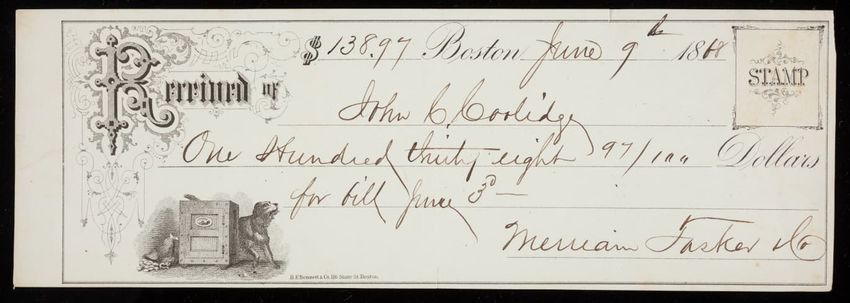 $138.97 Boston June 9th 1868
STAMP
Received of
John C. Coolidge
One Hundred thirty eight 97/100 Dollars
for bill June 3d —
Merriam Tasker & Co
B.F. Bennett & Co. 116 State St. Boston.